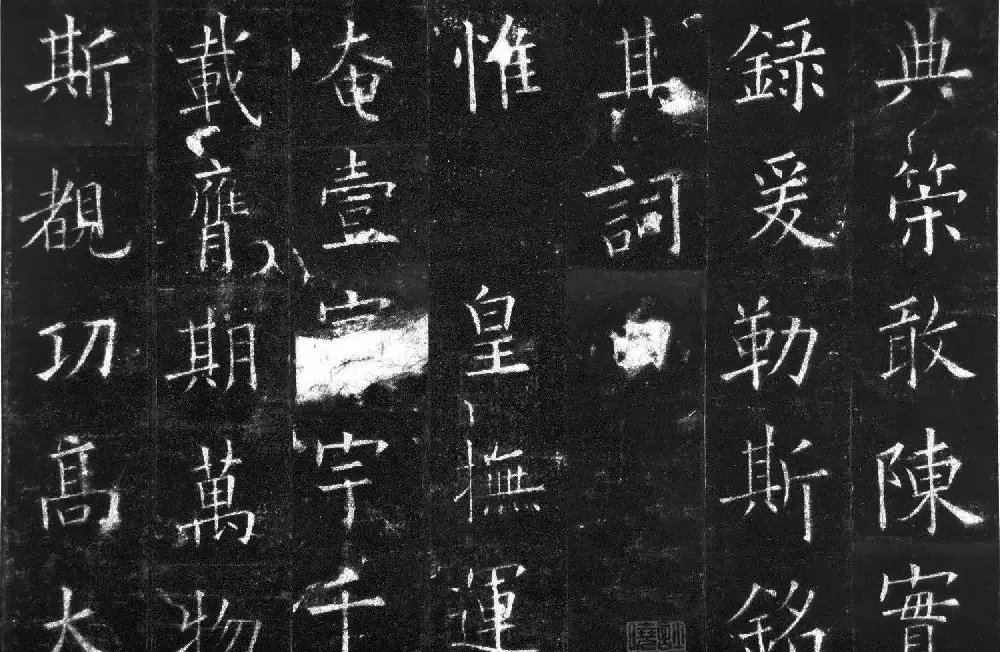 典策敢陳實
錄爰勒斯銘
其詞
惟皇撫運
奄壹宇千
載膺期萬物
斯覩功髙大